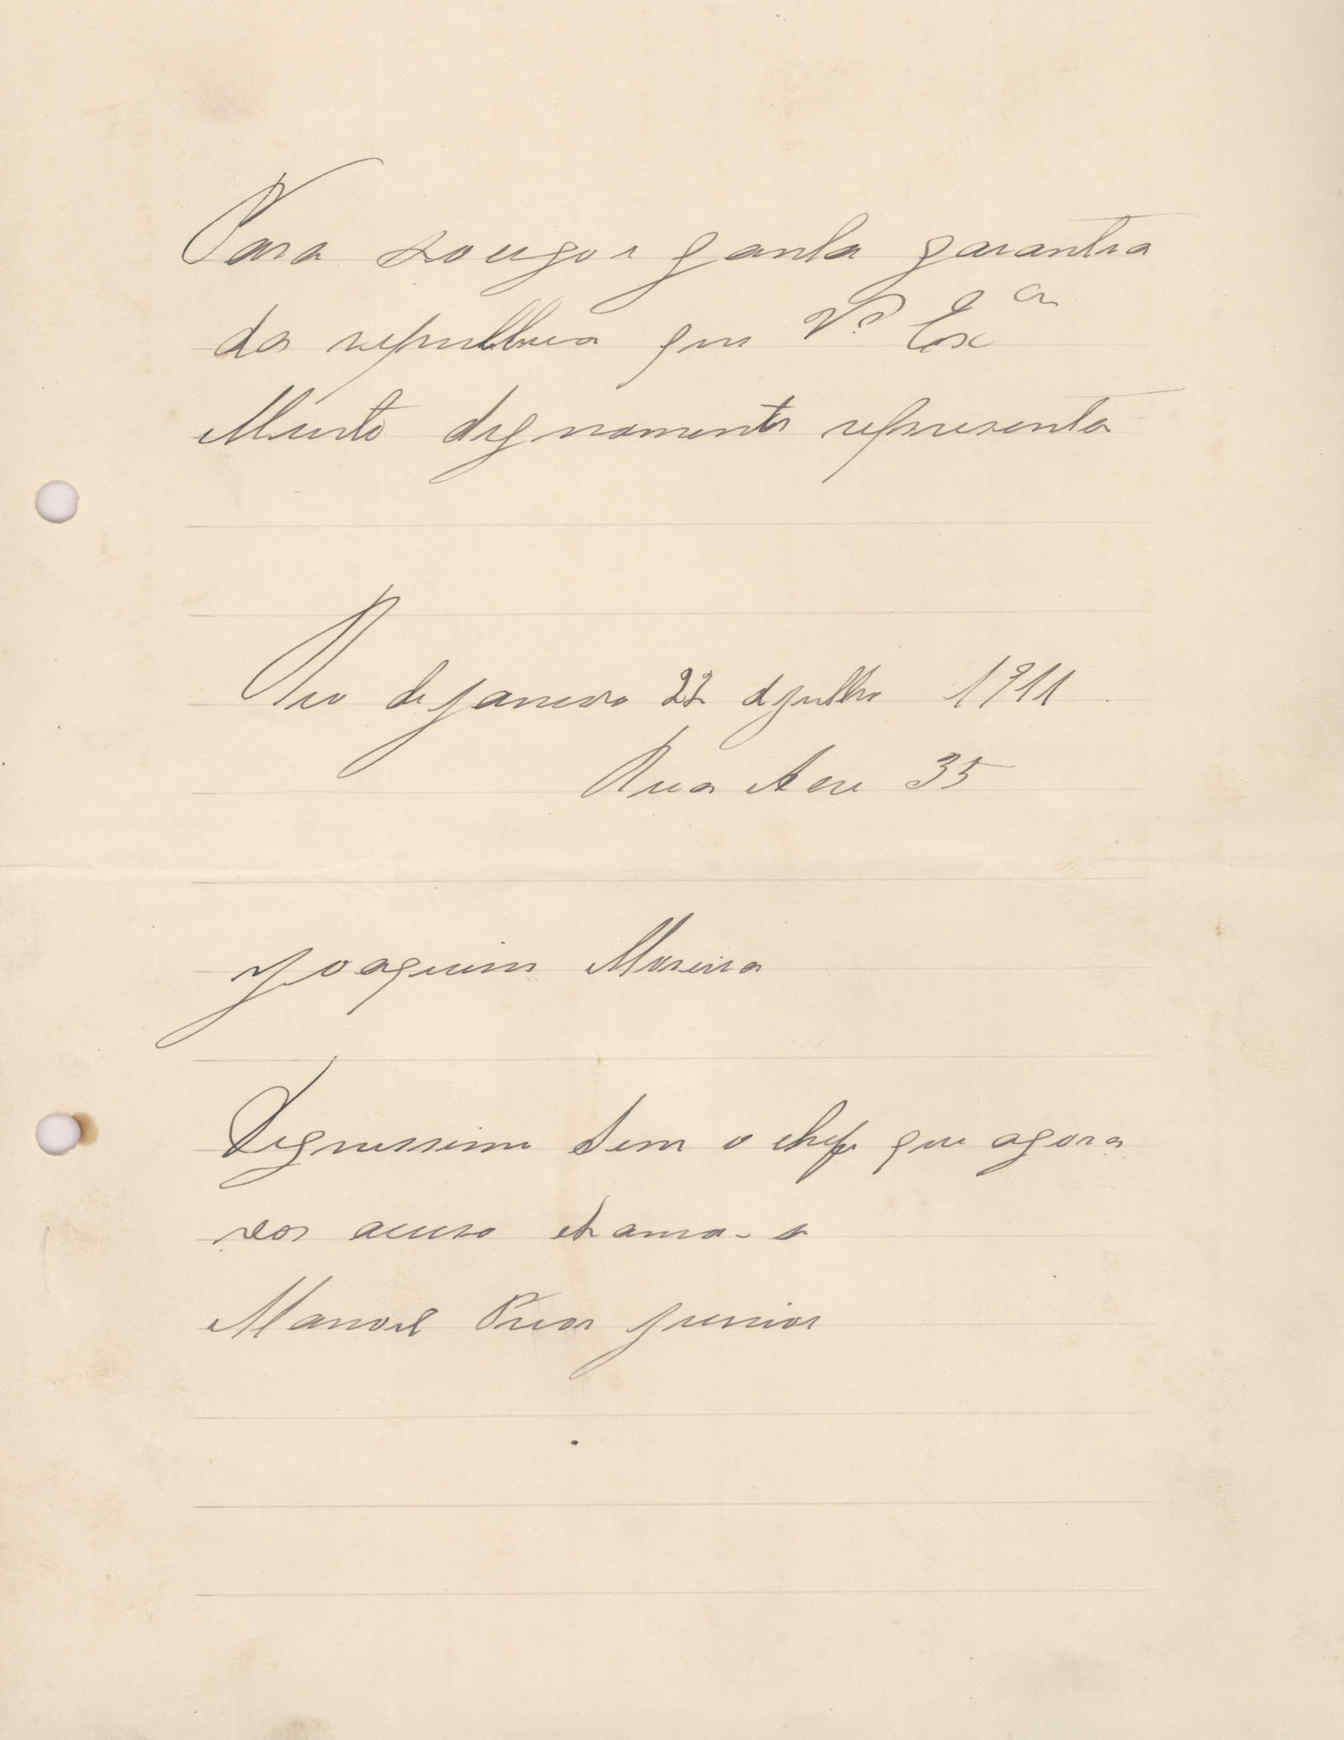 Para garantia
da republica que V.ª Ex cia
Muito dignamente representa
Rio de janeiro 22 d julho 1911
Rua Acre 35
Joaquim Moreira
Dignissimo Senr o chefe que agora
vos acuso chama-s
Manoel junior